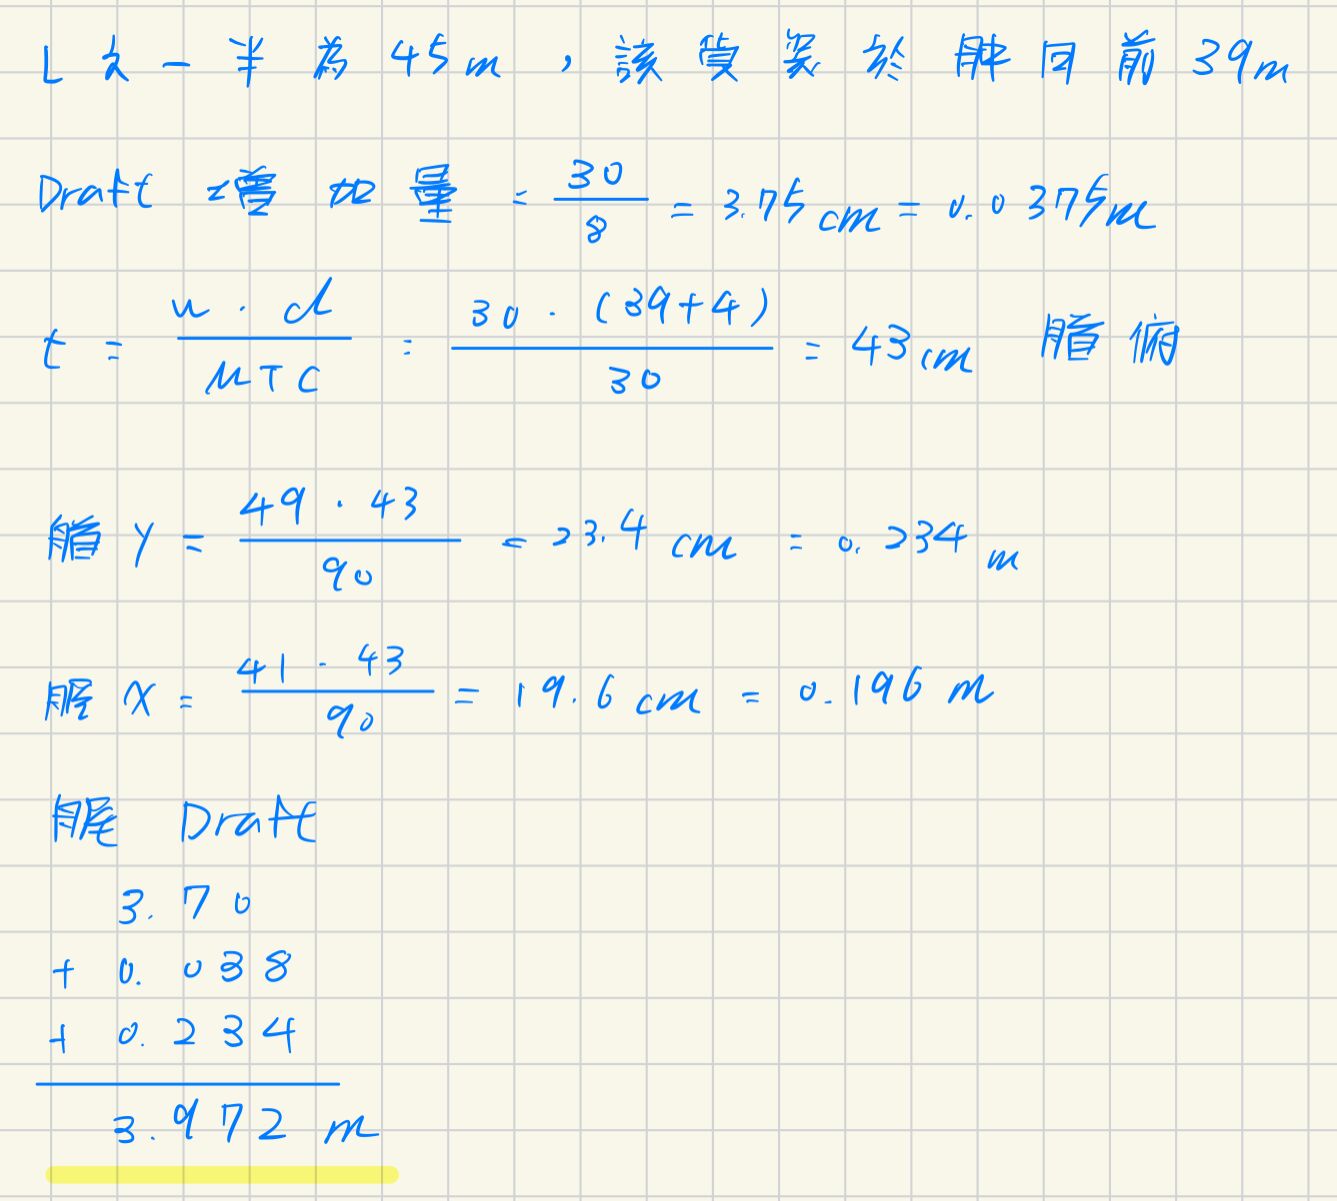 L之一半為45m，該貨裝於舯向前39m
Draft 增加量 = 30/8 = 3.75cm = 0.0375m
t = w·d/MTC = 30·(39+4)/30 = 43cm 艏俯
艏 Y = 49·43/90 = 23.4 cm = 0.234 m
艉 X = 41·43/90 = 19.6 cm = 0.196 m
艉 Draft
3.70
+ 0.038
+ 0.234
3.972 m